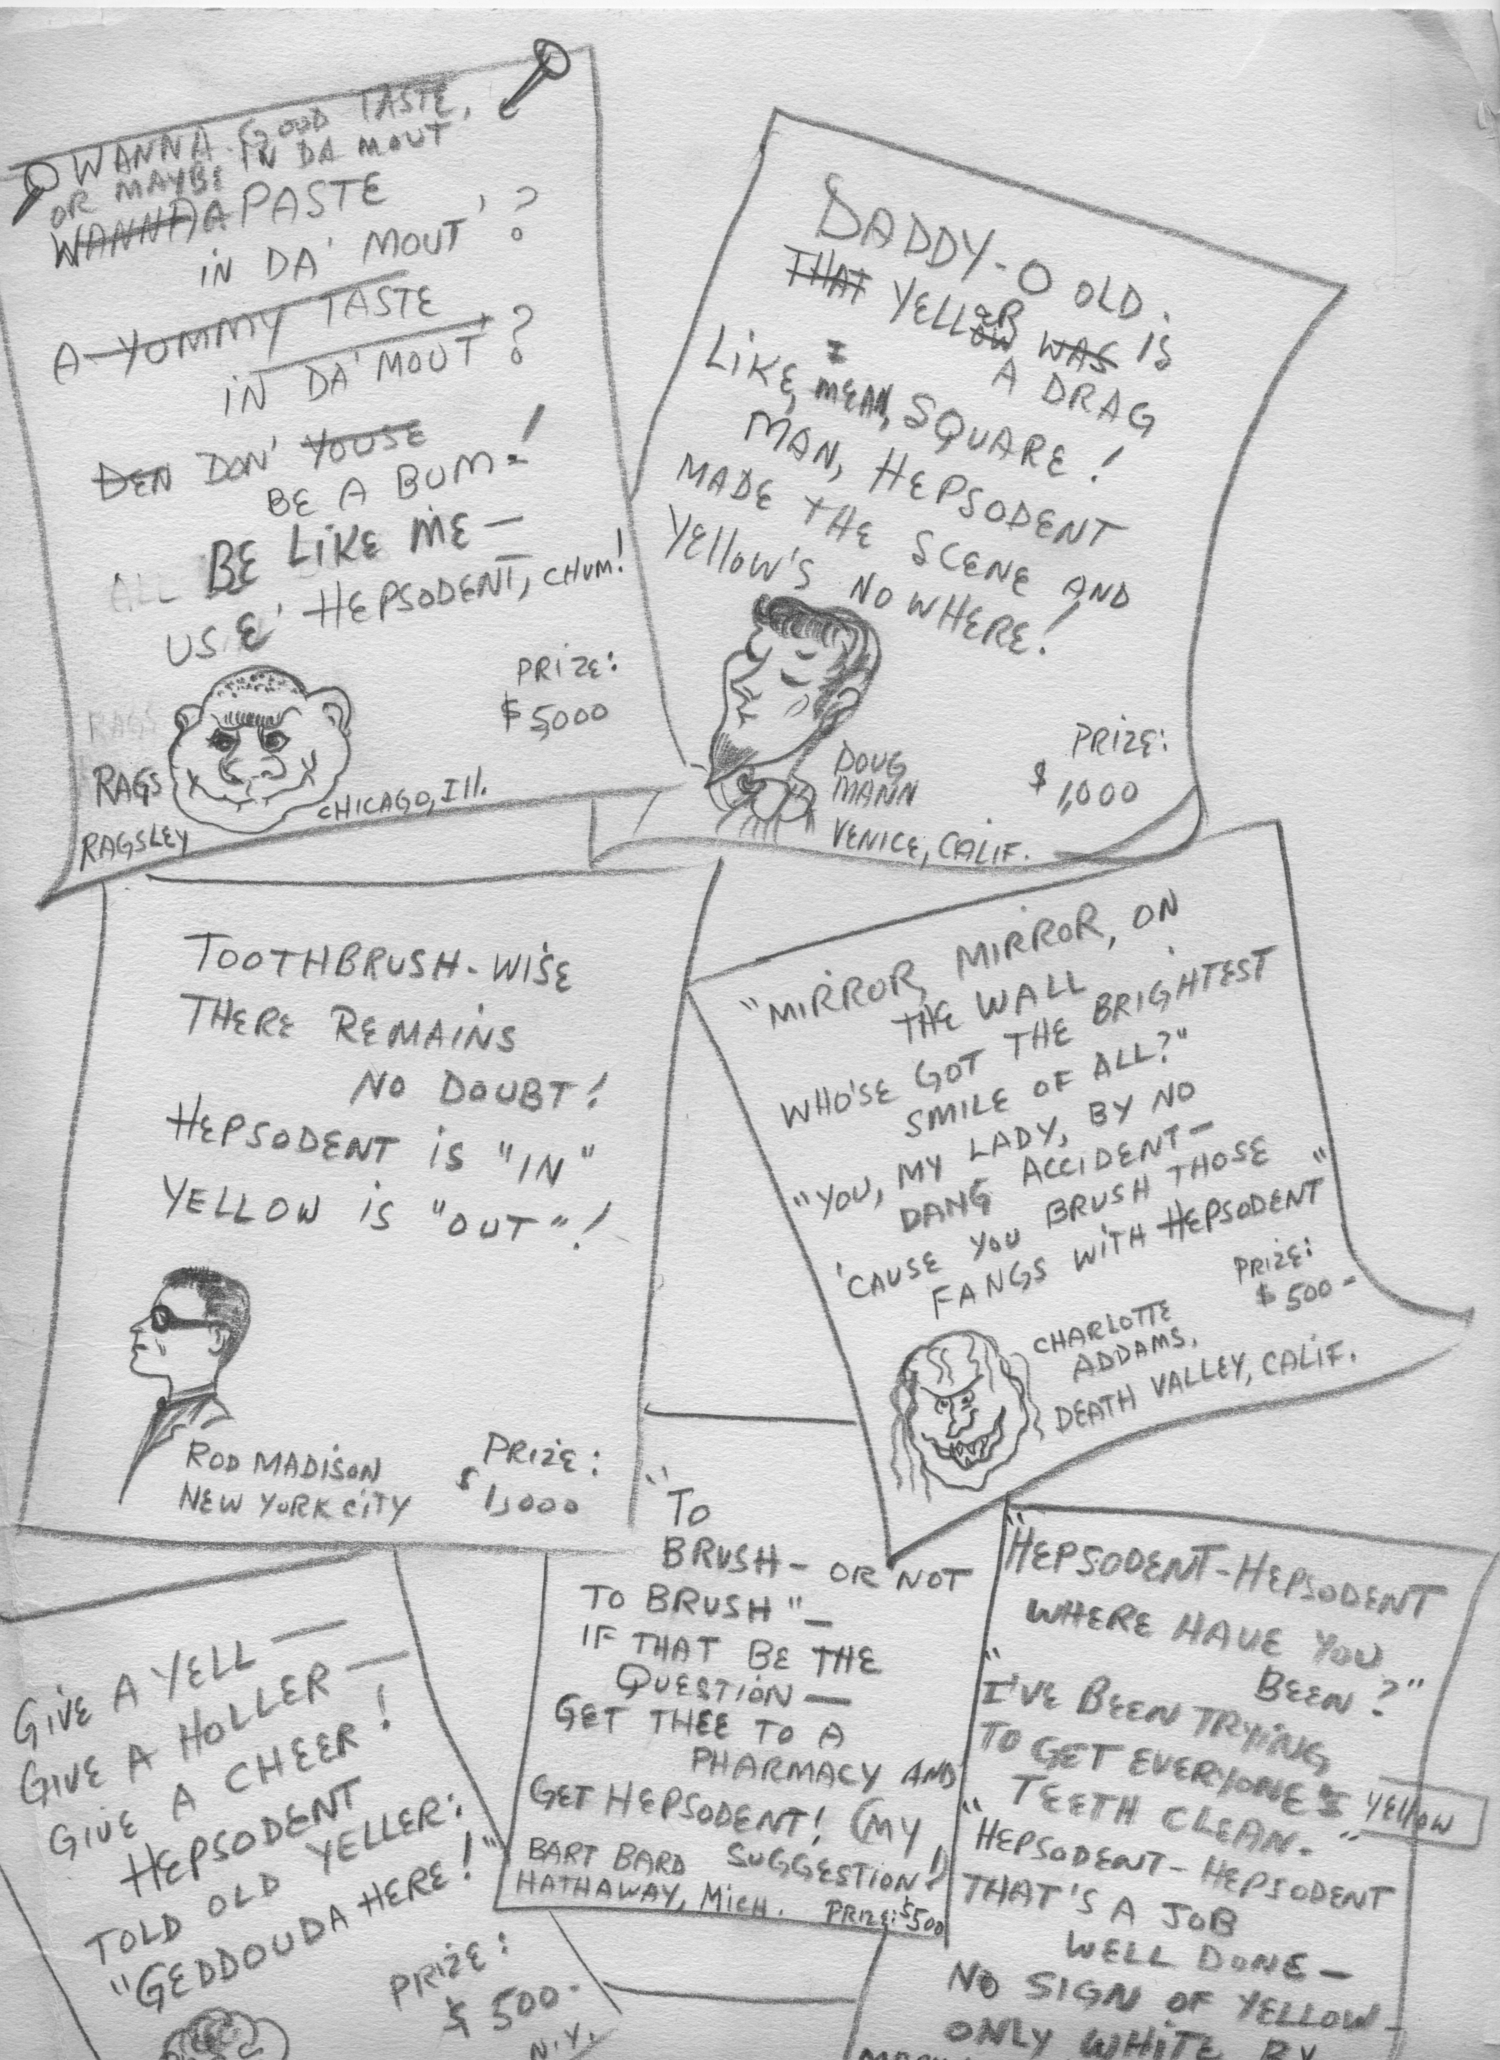 WANNA GOOD TASTE,
OR MAYBE IN DA MOUT
WANNA A PASTE
IN DA' MOUT'?
A YUMMY TASTE
IN DA' MOUT'?
DEN DON' YOUSE
BE A BUM!
ALL BE LIKE ME—
USE' HEPSODENT, CHUM!
PRIZE:
$5,000
RAGS
RAGS
RAGSLEY
CHICAGO, Ill.
DADDY-O OLD
THAT YELLOW ER WAS IS
A DRAG
LIKE, I MEAN, SQUARE!
MAN, HEPSODENT
MADE THE SCENE AND
YELLOW'S NOWHERE!
DOUG
MANN
VENICE, CALIF.
PRIZE:
$1,000
TOOTHBRUSH-WISE
THERE REMAINS
NO DOUBT!
HEPSODENT IS "IN"
YELLOW IS "OUT"!
ROD MADISON
NEW YORK CITY
PRIZE:
$1,000
"MIRROR, MIRROR, ON
THE WALL
WHO'SE GOT THE BRIGHTEST
SMILE OF ALL?"
"YOU, MY LADY, BY NO
DANG ACCIDENT—
'CAUSE YOU BRUSH THOSE
FANGS WITH HEPSODENT"
PRIZE:
$500-
CHARLOTTE
ADDAMS,
DEATH VALLEY, CALIF.
GIVE A YELL—
GIVE A HOLLER—
GIVE A CHEER!
HEPSODENT
TOLD OLD YELLER:
"GEDDOUDA HERE!"
PRIZE:
$500-
N.Y.
"TO
BRUSH- OR NOT
TO BRUSH"—
IF THAT BE THE
QUESTION—
GET THEE TO A
PHARMACY AND
GET HEPSODENT! (MY
SUGGESTION!)
BART BARD
HATHAWAY, MICH.
PRIZE: $500
"HEPSODENT-HEPSODENT
WHERE HAVE YOU
BEEN?"
"I'VE BEEN TRYING
TO GET EVERYONE'S YELLOW
TEETH CLEAN."
"HEPSODENT-HEPSODENT
THAT'S A JOB
WELL DONE—
NO SIGN OF YELLOW-
ONLY WHITE BY